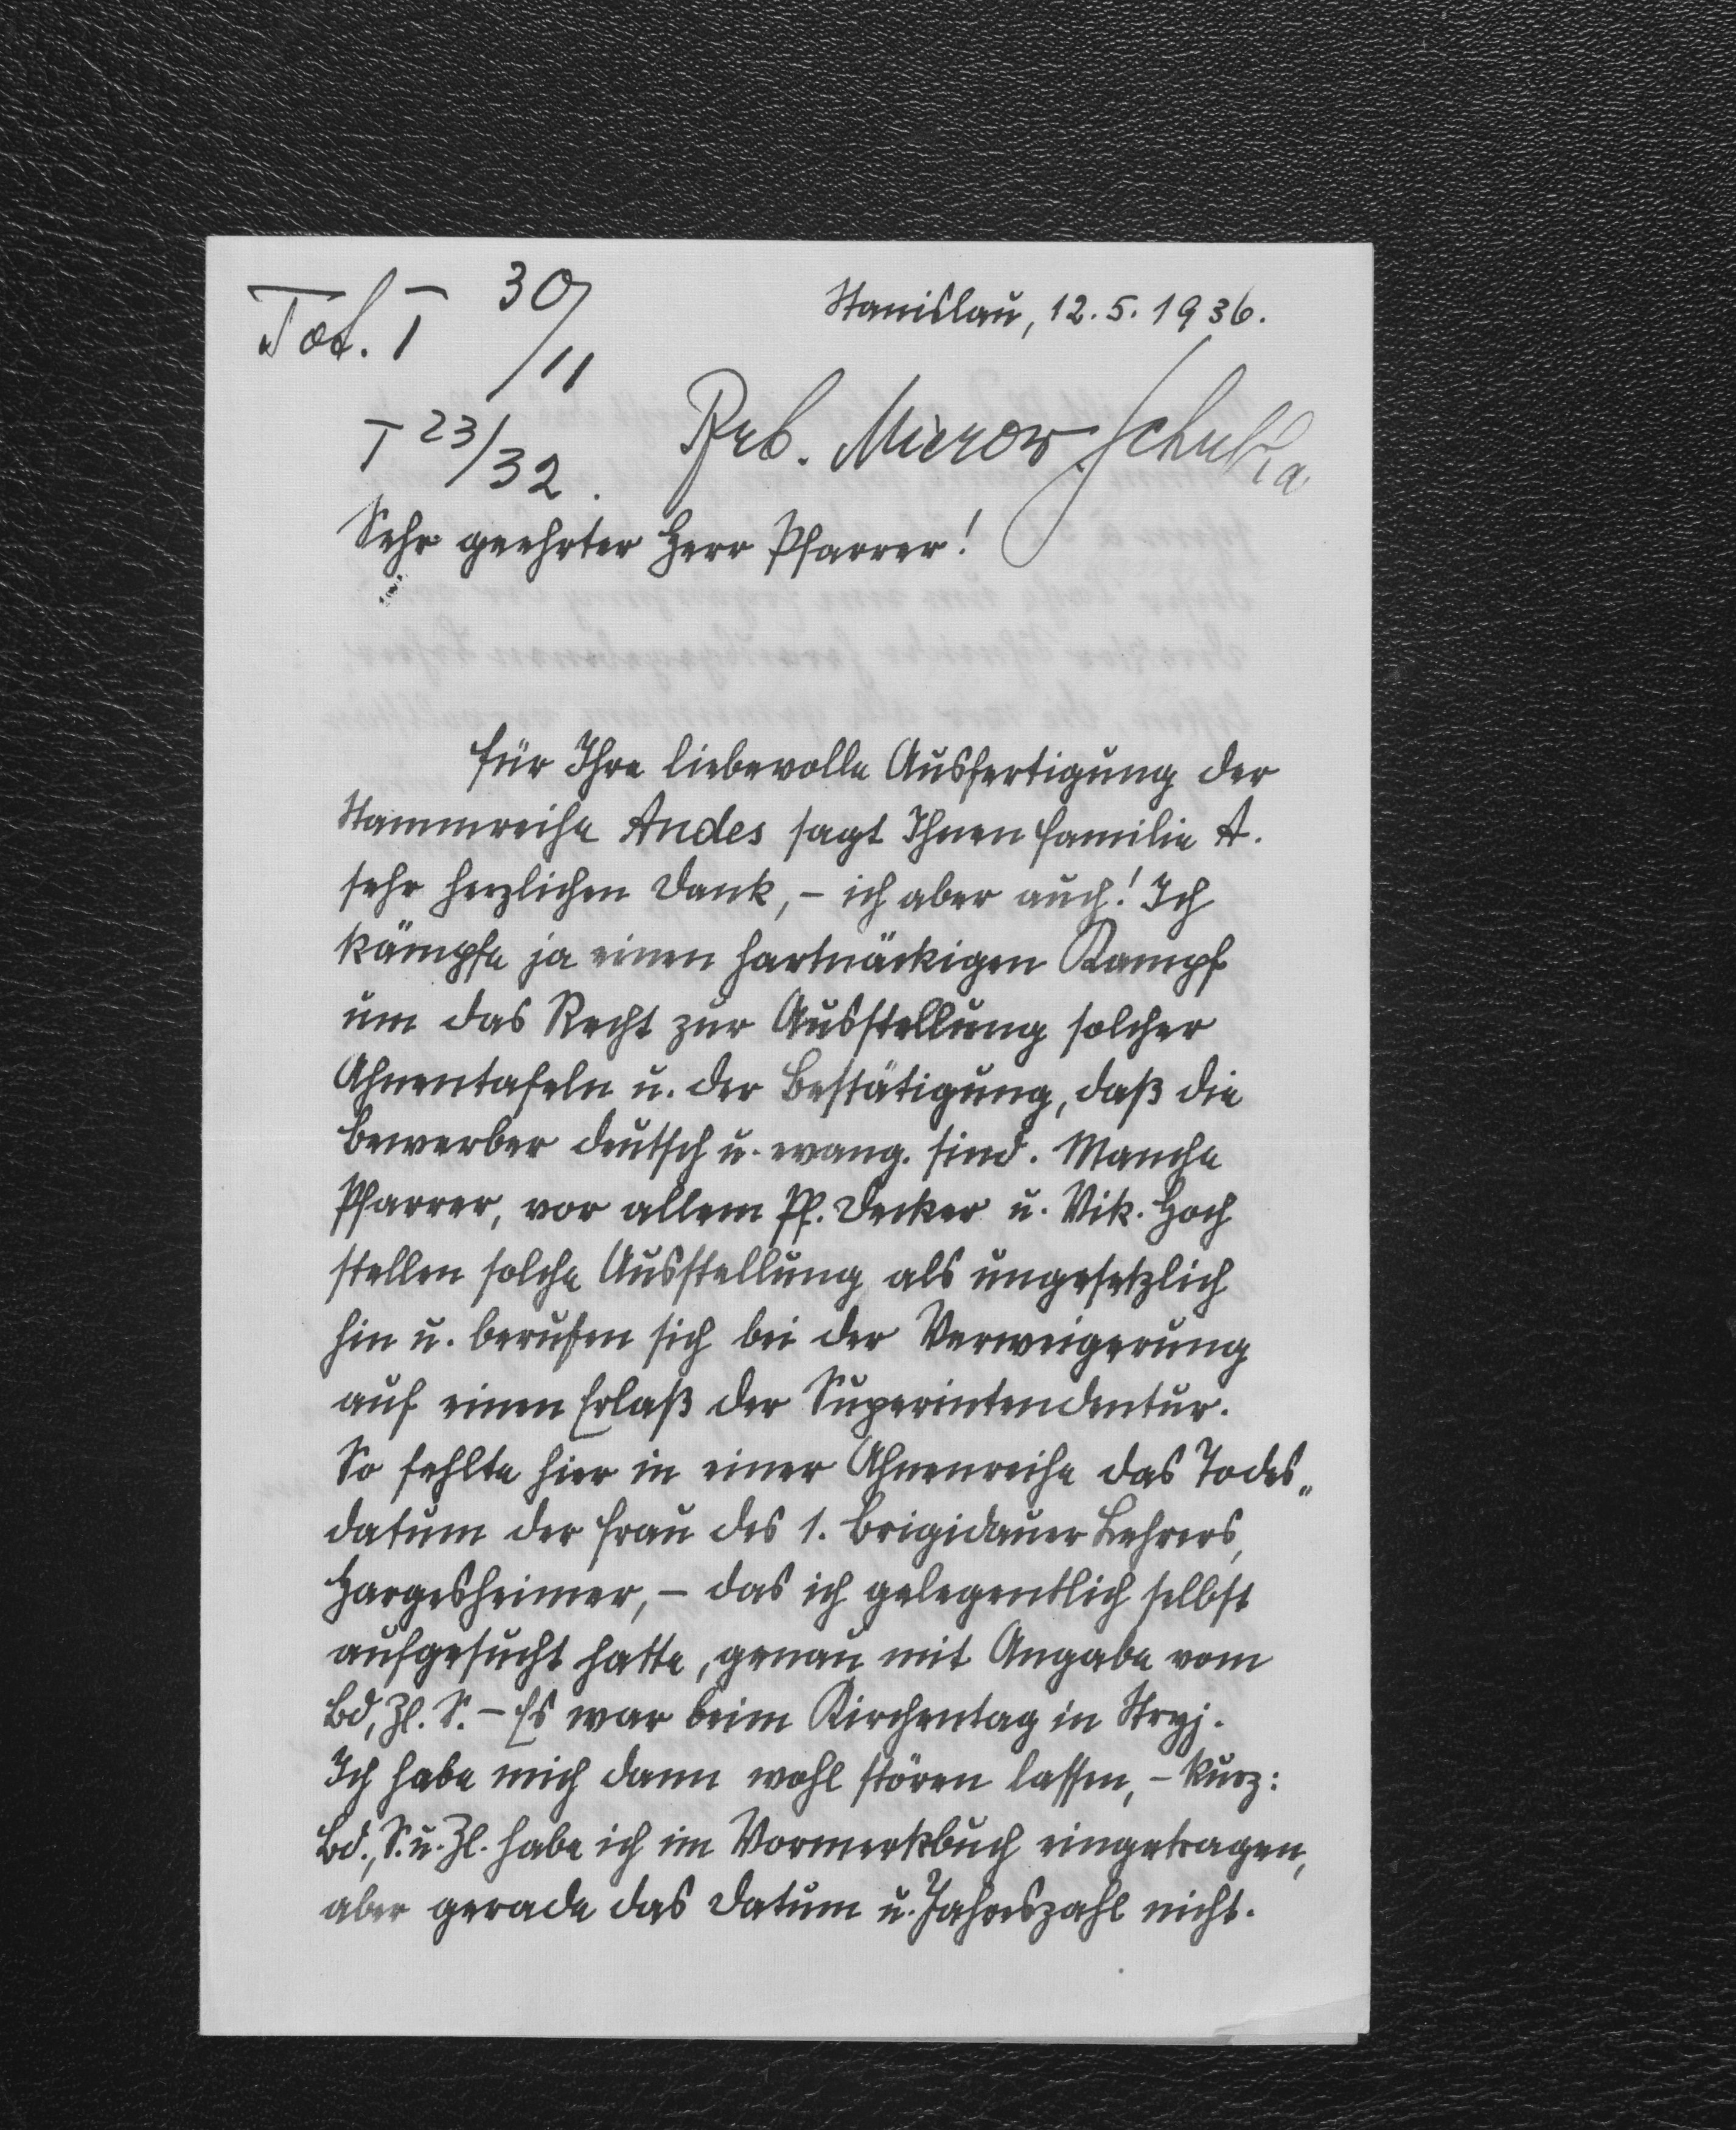 Tot. I 30/11
Stanislau, 12. 5. 1936.
I 23/32.
Sehr geehrter Herr Pfarrer!
für Ihre liebevolle Ausfertigung der
Stammreihe Andes sagt Ihnen Familie A.
sehr herzlichen Dank, – ich aber auch! Ich
kämpfe ja einen hartnäckigen Kampf
um das Recht zur Ausstellung solcher
Ahnentafeln u. der Bestätigung, daß die
Bewerber deutsch u. evang. sind. Manche
Pfarrer, vor allem Pf. Decker u. Vik. Hoch
stellen solche Ausstellung als ungesetzlich
hin u. berufen sich bei der Verweigerung
auf einen Erlaß der Superintendentur.
So fehlte hier in einer Ahnenreihe das Todes„
datum der Frau des 1. Brigidauer Lehrers,
Hargesheimer, – das ich gelegentlich selbst
aufgesucht hatte, genau mit Angabe vom
Bd, Zl. S. – Es war beim Kirchentag in Stryj.
Ich habe mich dann wohl stören lassen, – kurz:
Bd., S. u. Zl. habe ich im Vormerkbuch eingetragen,
aber gerade das Datum u. Jahreszahl nicht.